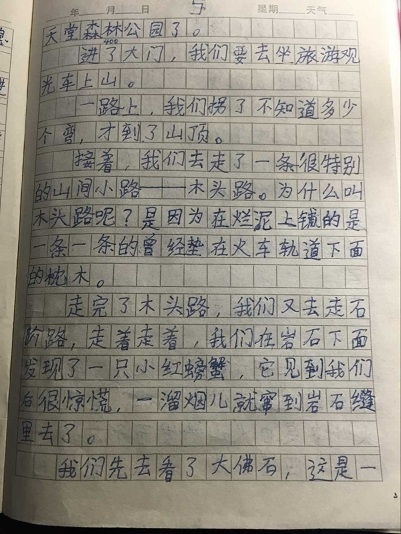 年 月 日 5 星期 天气
天堂森林公园了。
进了大门，我们要去坐旅游观
光车上山。
一路上，我们拐了不知道多少
个弯，才到了山顶。
接着，我们去走了一条很特别
的山间小路——木头路。为什么叫
木头路呢？是因为在烂泥上铺的是
一条一条的曾经垫在火车轨道下面
的枕木。
走完了木头路，我们又去走石
阶路，走着走着，我们在岩石下面
发现了一只小红螃蟹，它见到我们
后很惊慌，一溜烟儿就窜到岩石缝
里去了。
我们先去看了大佛石，这是一